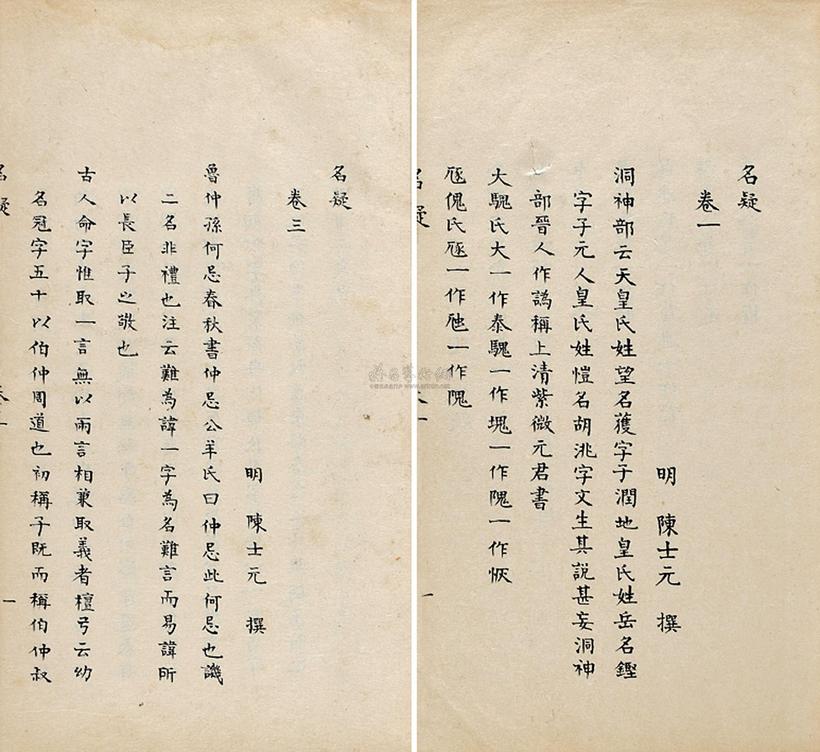 名疑
卷一
明 陳士元 撰
洞神部云天皇氏姓望名獲字子潤地皇氏姓岳名鏗
字子元人皇氏姓愷名胡洮字文生其說甚妄洞神
部晉人作譌稱上清紫微元君書
大騩氏大一作泰騩一作塊一作隗一作
傀氏 一作 一作隗
名疑
一
名疑
卷三
明 陳士元 撰
魯仲孫何忌春秋書仲忌公羊氏曰仲忌此何忌也譏
二名非禮也注云難為諱一字為名難言而易諱所
以長臣子之敬也
古人命字惟取一言無以兩言相兼取義者檀弓云幼
名冠字五十以伯仲周道也初稱子既而稱伯仲叔
名疑
一